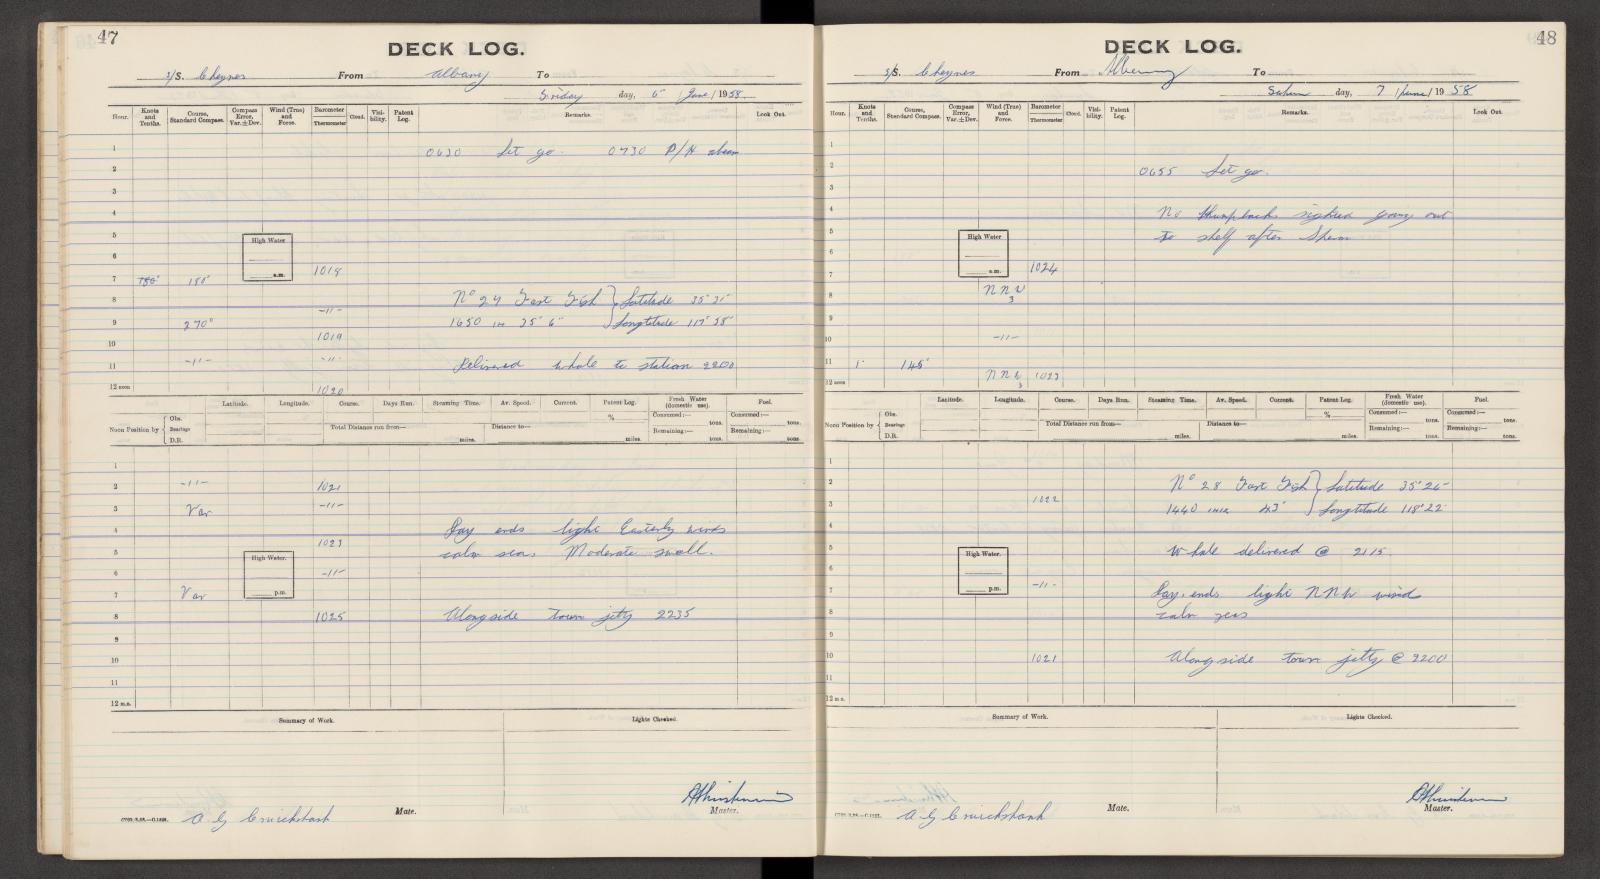 47
DECK LOG.
s/S. Cheynes From Albany To
Friday day, 6 / June / 1958
Hour. Knots and Tenths. Course, Standard Compass. Compass Error, Var. ± Dev. Wind (True) and Force. Barometer Thermometer Cloud. Visibility. Patent Log. Remarks. Look Out.
1 0630 Let go. 0730 P/H abeam
2
3
4
5 High Water
6
7 180° 180° a.m. 1019
8 -11- No 27 Fast Fish } Latitude 35° 31'
9 270° 1650 in 35' 6" Longtitude 117° 58'
10 1019
11 -11- -11- Delivered whale to station 2200
12 noon 1020
Latitude. Longitude. Course. Days Run. Steaming Time. Av. Speed. Current. Patent Log. Fresh Water (domestic use). Fuel.
Noon Position by { Obs. Bearings D.R. % Consumed:— tons. Consumed:— tons.
Total Distance run from— miles. Distance to— miles. Remaining:— tons. Remaining:— tons.
1
2 -11- 1021
3 Var -11-
4 1023 Day ends light Easterly winds
5 High Water. calm seas. Moderate swell.
6 -11-
7 Var p.m.
8 1025 Alongside town jetty 2235
9
10
11
12 m.n.
Summary of Work. Lights Checked.
A G Cruickshank Mate. Master.
48
DECK LOG.
s/S. Cheynes From Albany To
day, 7 / June / 1958
Hour. Knots and Tenths. Course, Standard Compass. Compass Error, Var. ± Dev. Wind (True) and Force. Barometer Thermometer Cloud. Visibility. Patent Log. Remarks. Look Out.
1
2 0655 Let go.
3
4 No Humpbacks sighted going out
5 High Water to shelf after Sperm
6
7 a.m. 1024
8 NNW 3
9
10 -11-
11 1' 145°
12 noon 3 1023
Latitude. Longitude. Course. Days Run. Steaming Time. Av. Speed. Current. Patent Log. Fresh Water (domestic use). Fuel.
Noon Position by { Obs. Bearings D.R. % Consumed:— tons. Consumed:— tons.
Total Distance run from— miles. Distance to— miles. Remaining:— tons. Remaining:— tons.
1
2 No 28 Fast Fish } Latitude 35° 26'
3 1022 1440 43' Longtitude 118° 22'
4
5 High Water. Whale delivered @ 2115
6
7 p.m. -11- Day ends light NNW wind
8 calm seas
9
10 1021 Alongside town jetty @ 2200
11
12 m.n.
Summary of Work. Lights Checked.
A G Cruickshank Mate. Master.